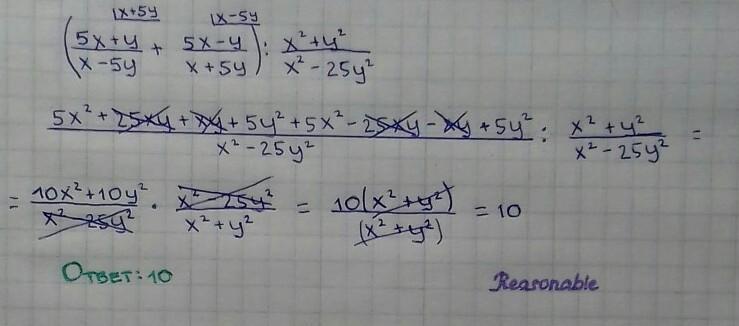 |x+5y |x-5y
(5x+y / x-5y + 5x-y / x+5y) : x²+y² / x²-25y²
5x²+25xy+xy+5y²+5x²-25xy-xy+5y² / x²-25y² : x²+y² / x²-25y² =
= 10x²+10y² / x²-25y² · x²-25y² / x²+y² = 10(x²+y²) / (x²+y²) = 10
Ответ: 10 Reasonable